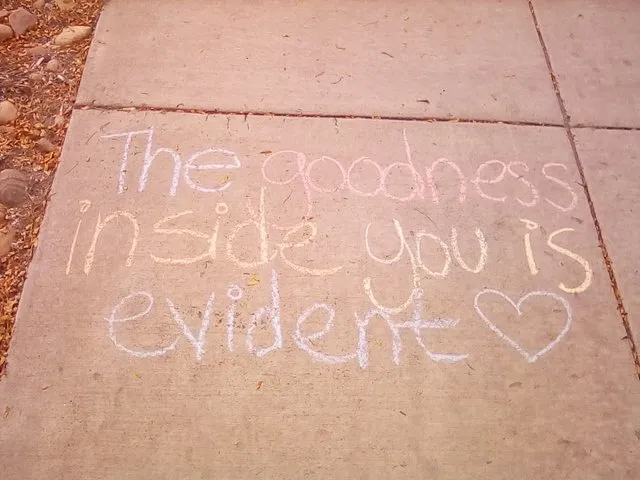 The goodness
inside you is
evident ♡